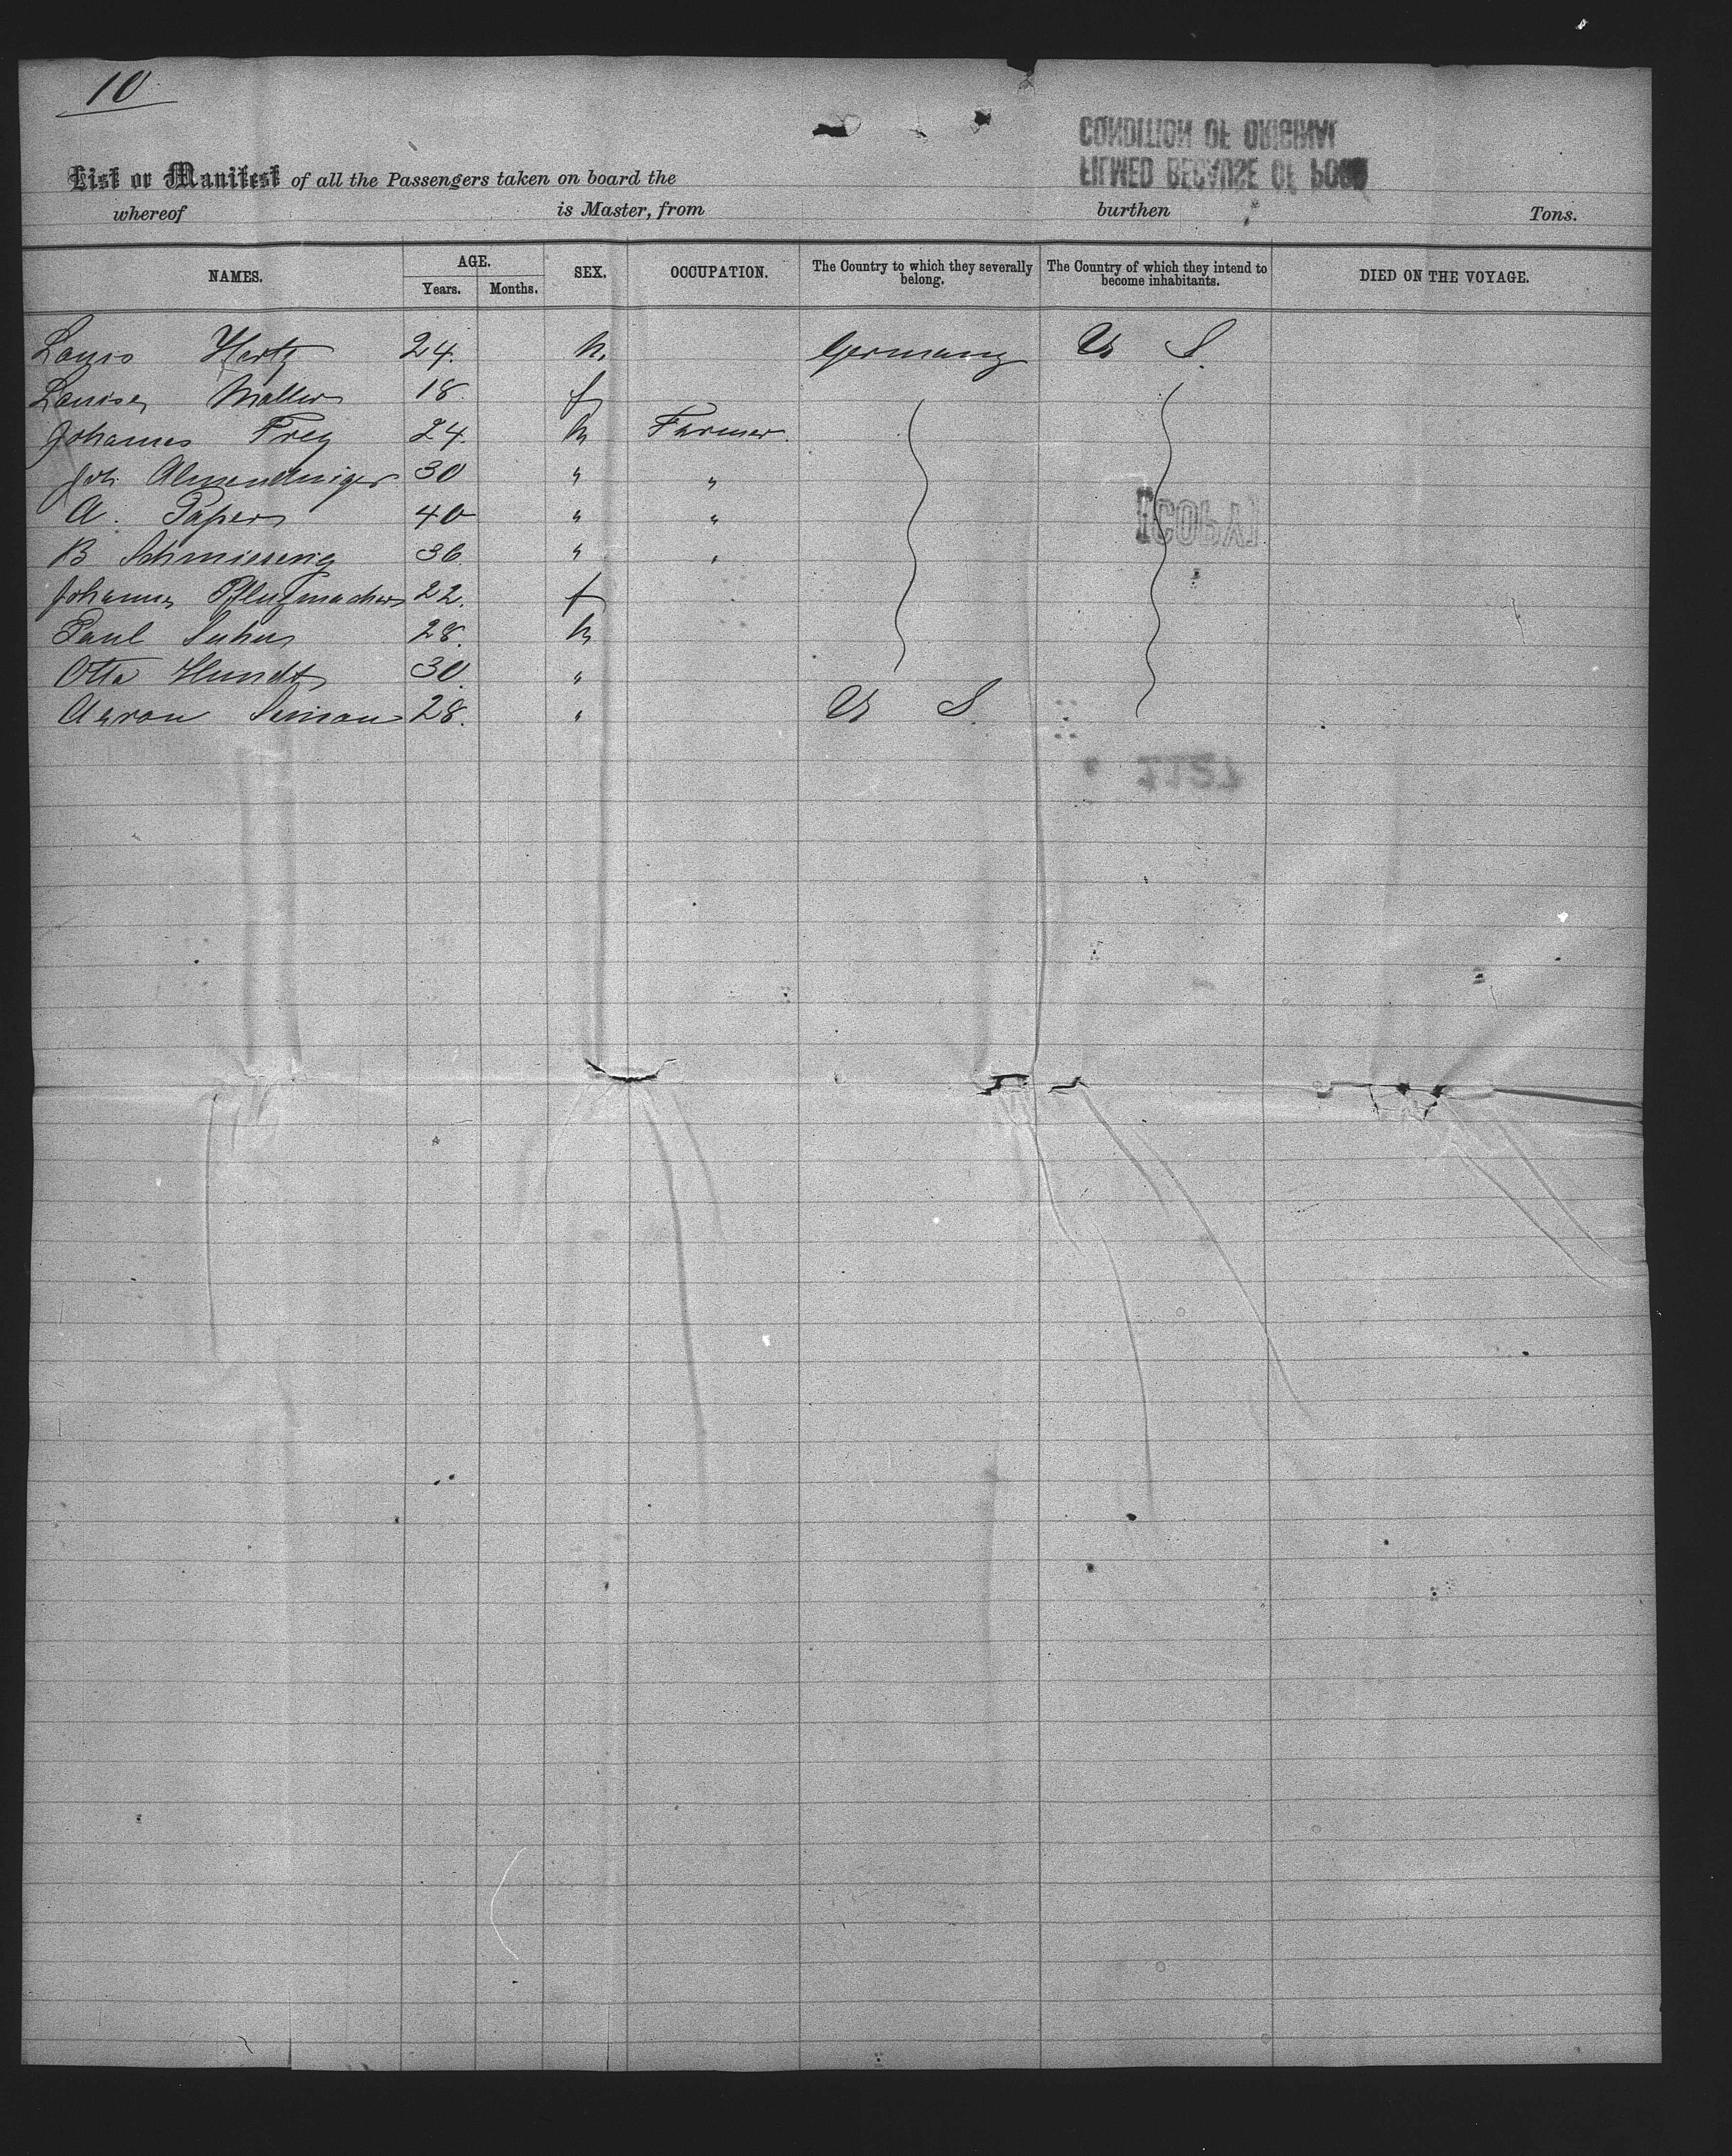 10
List or Manifest of all the Passengers taken on board the
whereof is Master, from burthen Tons.
NAMES. AGE. Years. Months. SEX. OCCUPATION. The Country to which they severally belong. The Country of which they intend to become inhabitants. DIED ON THE VOYAGE.
Louis Hertz 24. M. Germany U S.
Louise Moller 18. f
Johannes Frey 24. M Farmer.
Joh. Almendinger 30 " "
A. Papers 40 " "
B Schmiesing 36. " "
Johanna Pflugmacher 22. f
Paul 28. M
Otto Hundt 30. "
Aaron Simon 28. " U S.